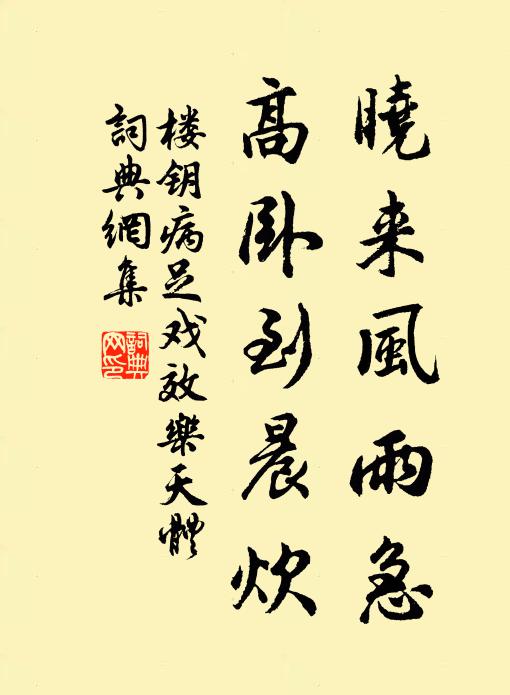 曉来風雨急
高卧到晨炊
楼钥病足戏效樂天體
詞典網集
詞典网印